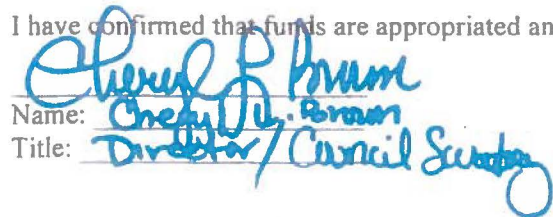 I have confirmed that funds are appropriated an
Cheryl L Brown
Name: Cheryl L. Brown
Title: Director / Council Secretary